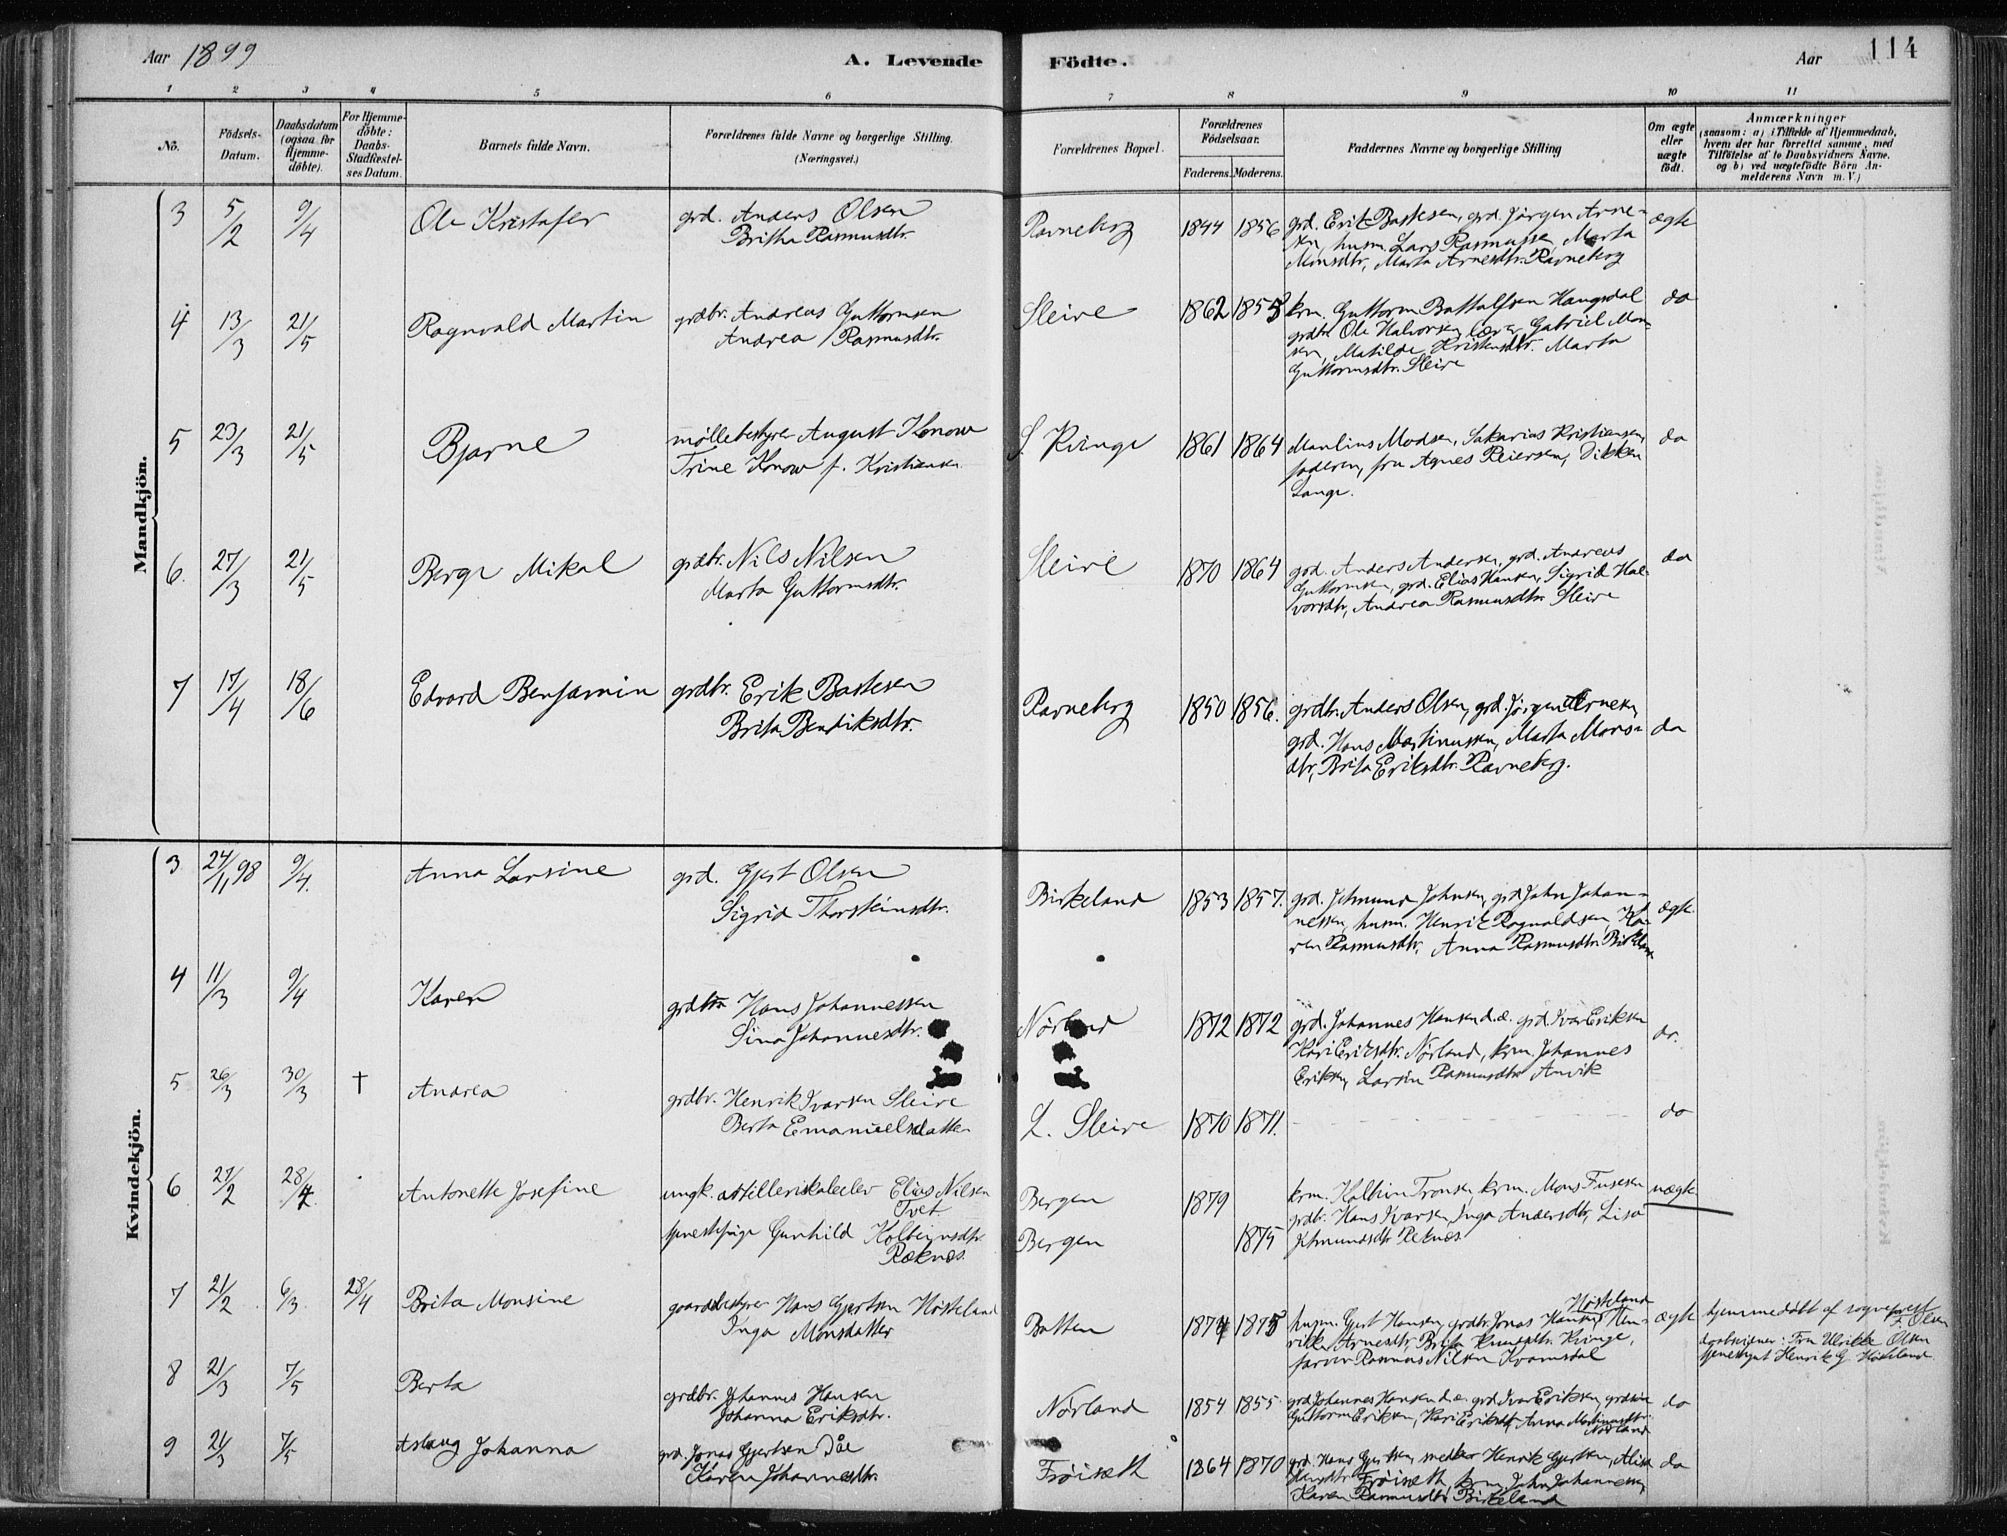 Aar 1899
A. Levende Födte.
Aar
114
1 2 3 4 5 6 7 8 9 10 11
No.
Födsels-Datum.
Daabsdatum (ogsaa for Hjemmedöbte).
For Hjemmedöbte: Daabs-Stadfæstelses Datum.
Barnets fulde Navn.
Forældrenes fulde Navne og borgerlige Stilling. (Næringsvei.)
Forældrenes Bopæl.
Forældrenes Födselsaar.
Faderens. Moderens.
Faddernes Navne og borgerlige Stilling
Om ægte eller uægte födt.
Anmærkninger
(saasom: a) i Tilfælde af Hjemmedaab, hvem der har forrettet samme, med Tilföielse af to Daabsvidners Navne, og b) ved uægtefödte Börn Anmelderens Navn m. V.)
Mandkjön.
3 5/2 9/4 Ole Kristofer
grd. Anders Olsen
Britha Rasmusdtr.
Ravneberg 1844 1856
grd. Erik Bastesen, grd. Jørgen Arne-
sen, husm. Lars Rasmussen, Marta
Monsdtr, Marta Arnesdtr. Ravneberg
ægte
4 13/3 21/5 Ragnvald Martin
grdbr. Andreas Guttormsen
Andrea Rasmusdtr.
Sleire 1862 1855
krm. Guttorm Battalfsen Haugsdal
grdbr Ole Halvorsen, lærer Gabriel Mon-
sen, Matilde Kristensdtr. Marta
Guttormsdtr. Sleire
do
5 23/3 21/5 Bjarne
møllebestyrer August Konow
Trine Konow f. Kristiansen
S. Kvinge 1861 1864
Manlius Madsen, Sakarias Kristiansen,
faderen, fru Agnes Reiersen, Dikken
Lange.
do
6. 27/3 21/5 Berge Mikal
grdbr. Nils Nilsen
Marta Guttormsdtr.
Sleire 1870 1864
grd. Anders Andersen, grd. Andreas
Guttormsen, grd. Elias Hansen, Sigrid Hal-
vorsdtr, Andrea Rasmusdtr. Sleire
do
7 17/4 18/6 Edvard Benjamin
grdbr. Erik Bastesen
Brita Bendiksdtr.
Ravneberg 1850 1856.
grdbr. Anders Olsen, grd. Jørgen Arnesen,
grd. Hans Martinussen, Marta Mons-
dtr, Brita Eriksdtr. Ravneberg.
do
Kvindekjön.
3 24/11 98 9/4. Anna Larsine
grd. Gjert Olsen
Sigrid Thorsteinsdtr.
Birkeland 1853 1857.
grd. Johnsen, grd John Johan-
nessen, husm. Henrik Ragnvaldsen, Ka-
ren Rasmusdtr, Anna Rasmusdtr. Birkeland
ægte.
4 11/3 9/4 Karen
grdbr. Hans Johannessen
Sina Johannesdtr.
Nørland 1872 1872
grd. Johannes Hansen d.æ. grd Ivar Eriksen
Kari Eriksdtr. Nørland, krm. Johannes
Eriksen, Larsin Rasmusdtr. Anvik
do.
5 26/3 30/3 † Andrea
grdbr. Henrik Ivarsen Sleire
Berta Emanuelsdatter
L. Sleire 1870 1871. do
6 27/2 28/4 Antonette Josefine
ungk. artilleriskoleelev Elias Nilsen
Tvet
tjenestepige Gunhild Kolbeinsdtr.
Reknes.
Bergen 1879
Bergen 1875
krm. Kolbein Tronsen, krm. Mons Fusesen
grdbr. Hans Ivarsen, Inga Andersdtr, Lisa
Reknes
uægte
7 21/2 6/3. 28/4 Brita Monsine
gaardsbestyrer Hans Gjertsen Høsteland
Inga Monsdatter
Botten 1874 1875
husm. Gjert Hansen, grdbr. Jonas Hansen Høsteland Hen-
rikke Arnesdtr, Brita Knudsdtr. Kvinge,
farver Rasmus Nilsen Kvamsdal
ægte
hjemmedøbt af sogneprest
F. Olsen
daabsvidner: Fru Ulrikke Olsen
tjenestegut Henrik G. Høsteland.
8 21/3 7/5 Berta
grdbr. Johannes Hansen
Johanna Eriksdtr.
Nørland 1854 1855
grd Johannes Hansen d.æ. grd Ivar Eriksen, grdsøn
Guttorm Eriksen, Kari Eriksdtr, Anna Martinusdtr.
Nørland
do
9 21/3 7/5 Aslaug Johanna
grd. Jonas Gjertsen Dåe
Karen Johannesdtr.
Frøiset 1864 1870
grd. Hans Gjertsen, snedker Henrik Gjertsen, Alise
Hansdtr. Frøiset, krm. John Johannessen,
Karen Rasmusdtr Birkeland
do